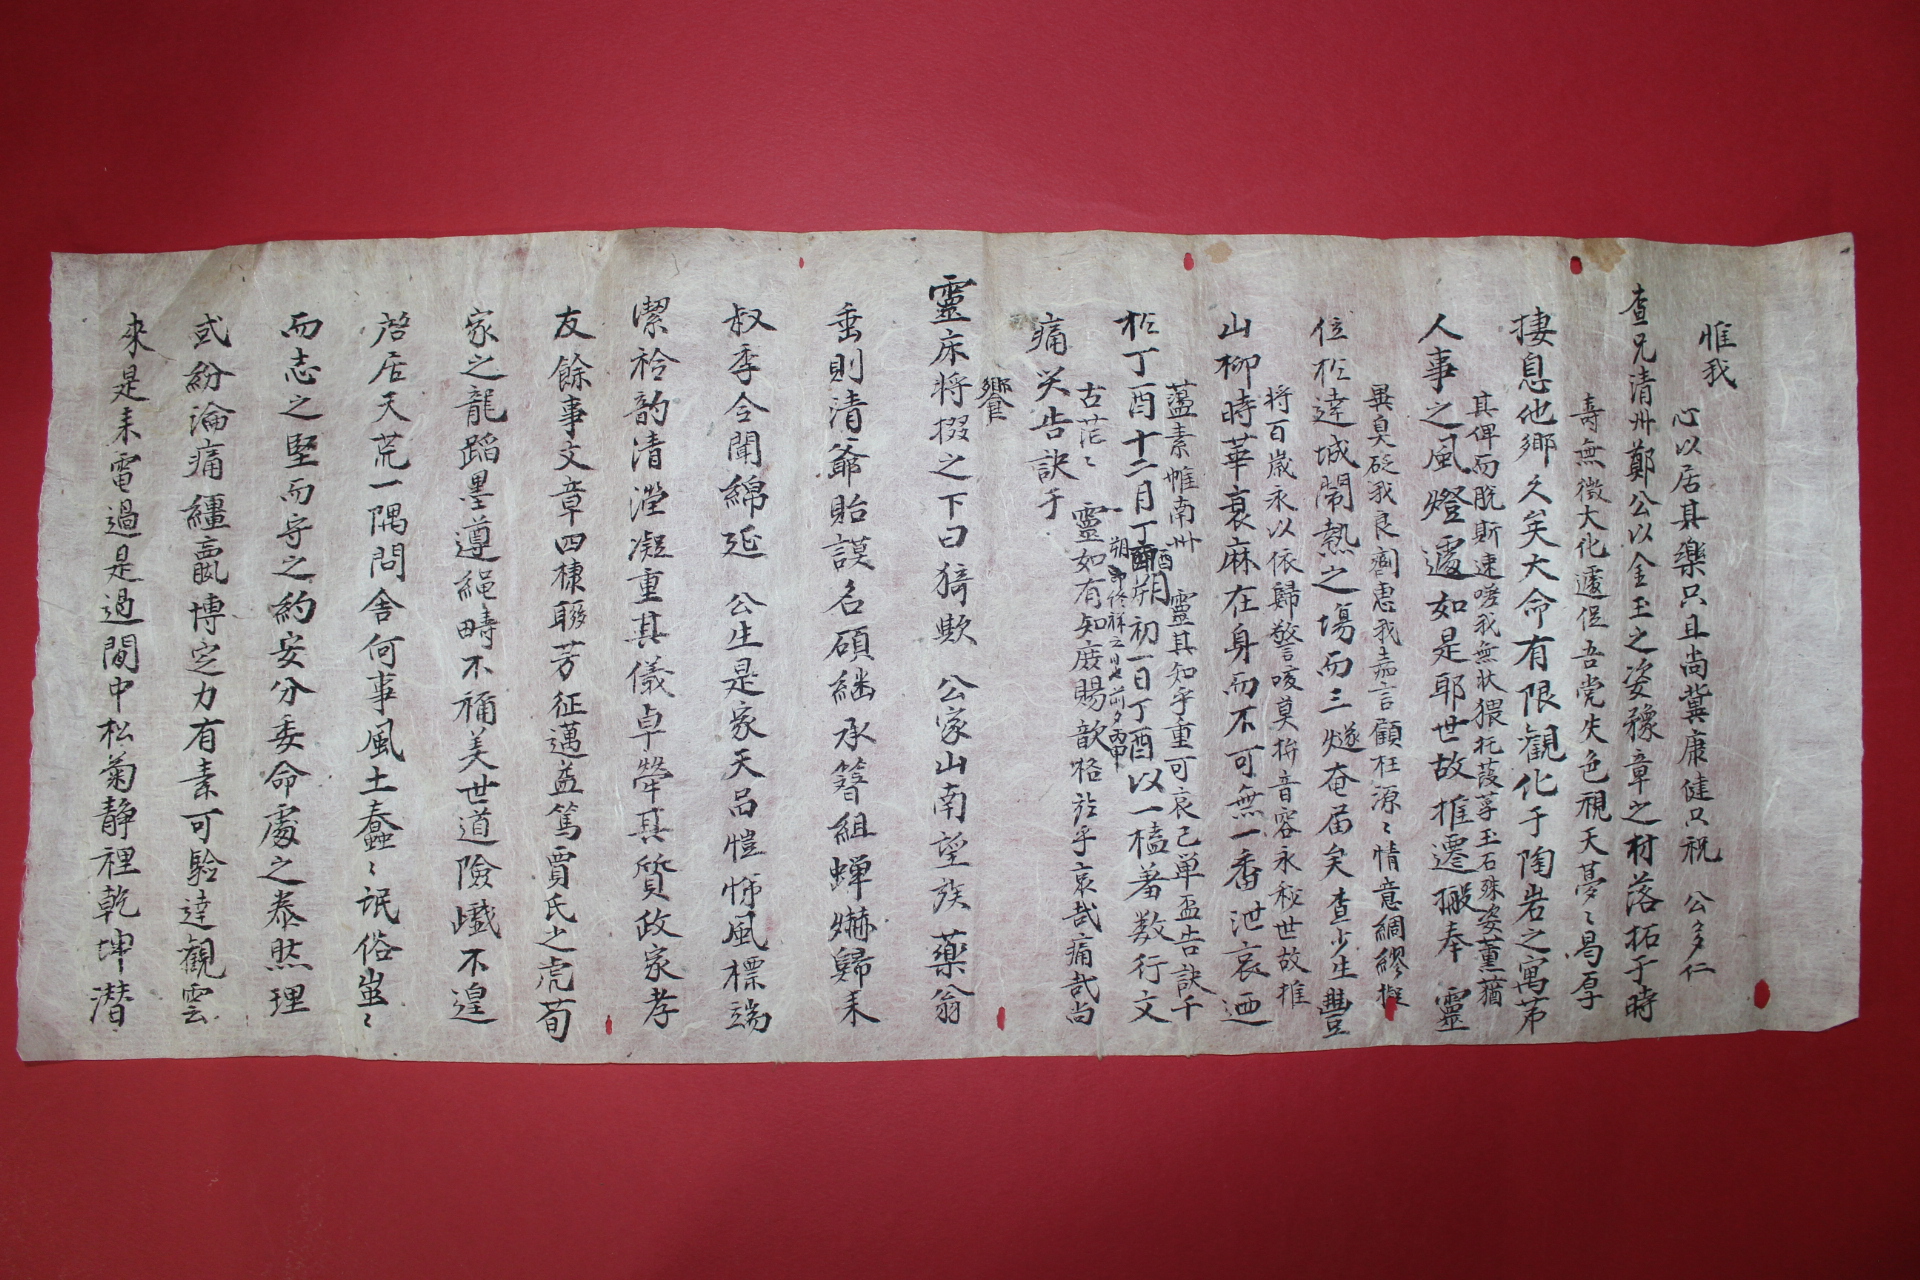 惟我
查兄清州鄭公以金玉之姿豫章之材落拓于時
棲息他鄉久矣大命有限觀化于陶岩之寓第
人事之風燈遽如是耶世故推遷搬奉 靈
位於達城鬧熱之場而三燧奄届矣 查少生豐
山柳時華衰麻在身而不可無一番泄哀迺
於丁酉十二月丁酉朔初一日丁酉以一榼羞数行文
痛哭告訣于
靈床將掇之下曰猗歟 公家山南望族 藥翁
垂則清爺貽謨名碩繼承簪組蟬嫣歸来
叔季令聞綿延 公生是家天品愷悌風標端
潔衿韵清瀅凝重其儀卓犖其質政家孝
友餘事文章四棣聯芳征邁益篤賈氏之虎荀
家之龍蹈墨遵繩疇不稱美世道險巇不遑
啓居天荒一隅問舍何事風土蠢〻氓俗蚩〻
而志之堅而守之約安分委命處之泰然理
或紛淪痛纏 博定力有素可驗達觀雲
來是耒電過是過閒中松菊静裡乾坤潜
心以居其樂只且尚冀康健只祝 公多仁
壽無徵大化遽促吾党失色視天夢〻曷厚
其俾而脫斯速嗟我無狀猥托葭莩玉石殊姿薰蕕
異臭砭我良劑惠我嘉言顧枉源〻情意綢繆擬
將百歲永以依歸警咳莫拚音容永秘世故推
蘯素帷南州 靈其知乎重可哀已單盃告訣千
古茫〻 靈如有知庶賜歆格於乎哀哉痛哉尚
饗